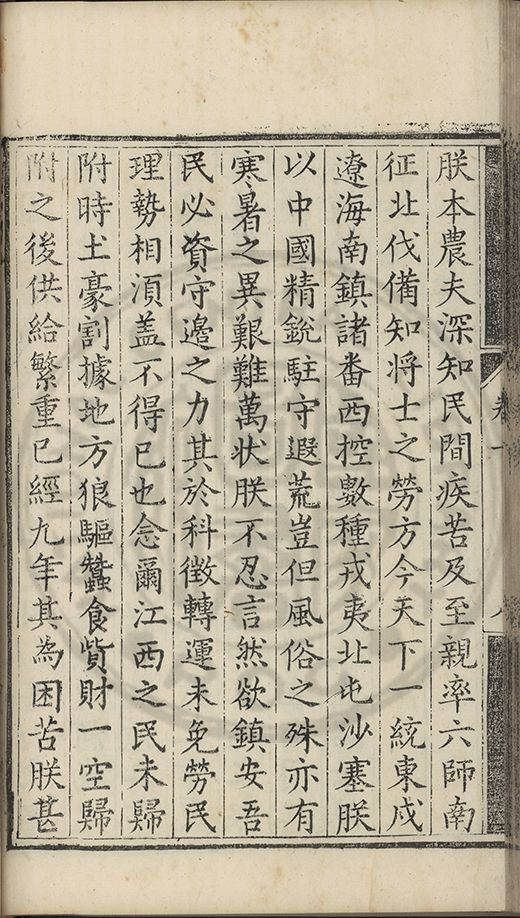 朕本農夫深知民間疾苦及至親率六師南
征北伐備知将士之勞方今天下一統東戍
遼海南鎮諸畨西控數種戎夷北屯沙塞朕
以中國精銳駐守遐荒豈但風俗之殊亦有
寒暑之異艱難萬状朕不忍言然欲鎮安吾
民必資守邊之力其於科徴轉運未免勞民
理勢相湏盖不得已也念爾江西之民未歸
附時土豪割據地方狼驅蠶食貲財一空歸
附之後供給繁重已經九年其為困苦朕甚